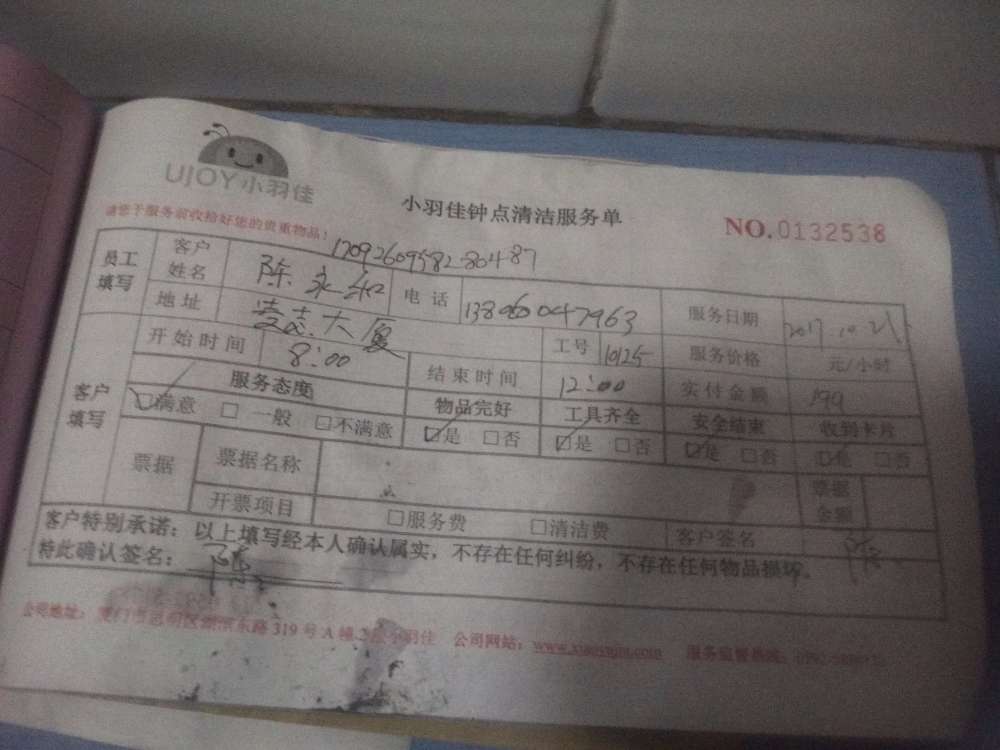 UJOY小羽佳
小羽佳钟点清洁服务单
NO.0132538
请您于服务前收拾好您的贵重物品!
1709260958280487
员工填写 客户姓名 陈永和 电话 13806047963 服务日期 2017 10 21
地址 大厦 工号 10125 服务价格 元/小时
客户填写 开始时间 8:00 结束时间 12:00 实付金额
服务态度 物品完好 工具齐全 安全结束 收到卡片
☑满意 □一般 □不满意 ☑是 □否 ☑是 □否 ☑是 □否 □是 □否
票据 票据名称 票据金额
开票项目 □服务费 □清洁费 客户签名 陈
客户特别承诺:以上填写经本人确认属实,不存在任何纠纷,不存在任何物品损坏。
特此确认签名: 陈
公司地址:厦门市思明区湖滨东路319号A幢2层小羽佳 公司网站:www.xiaoyujia.com 服务监督热线: